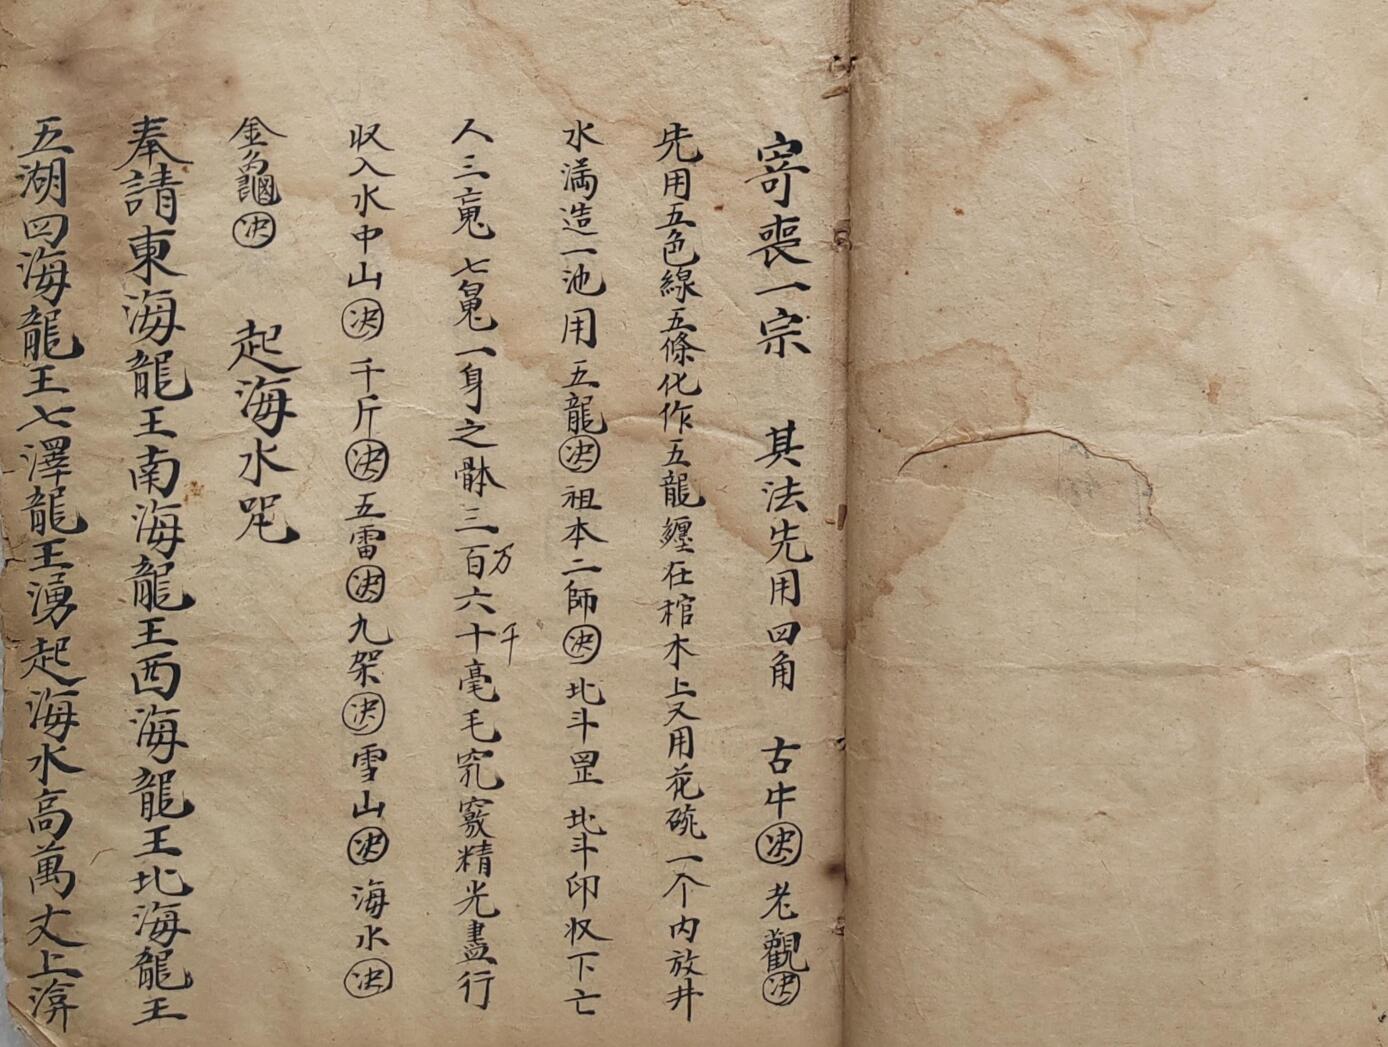 寄喪一宗 其法先用四角 古牛決 老觀決
先用五色線五條化作五龍纏在棺木上又用花碗一个內放井
水满造一池用五龍決祖本二師決北斗罡北斗印収下亡
人三魂七魄一身之骵三百万六十千毫毛窍竅精光盡行
収入水中山決千斤決五雷決九架決雪山決海水決
金 決 起海水咒
奉請東海龍王南海龍王西海龍王北海龍王
五湖四海龍王七澤龍王湧起海水高萬丈上